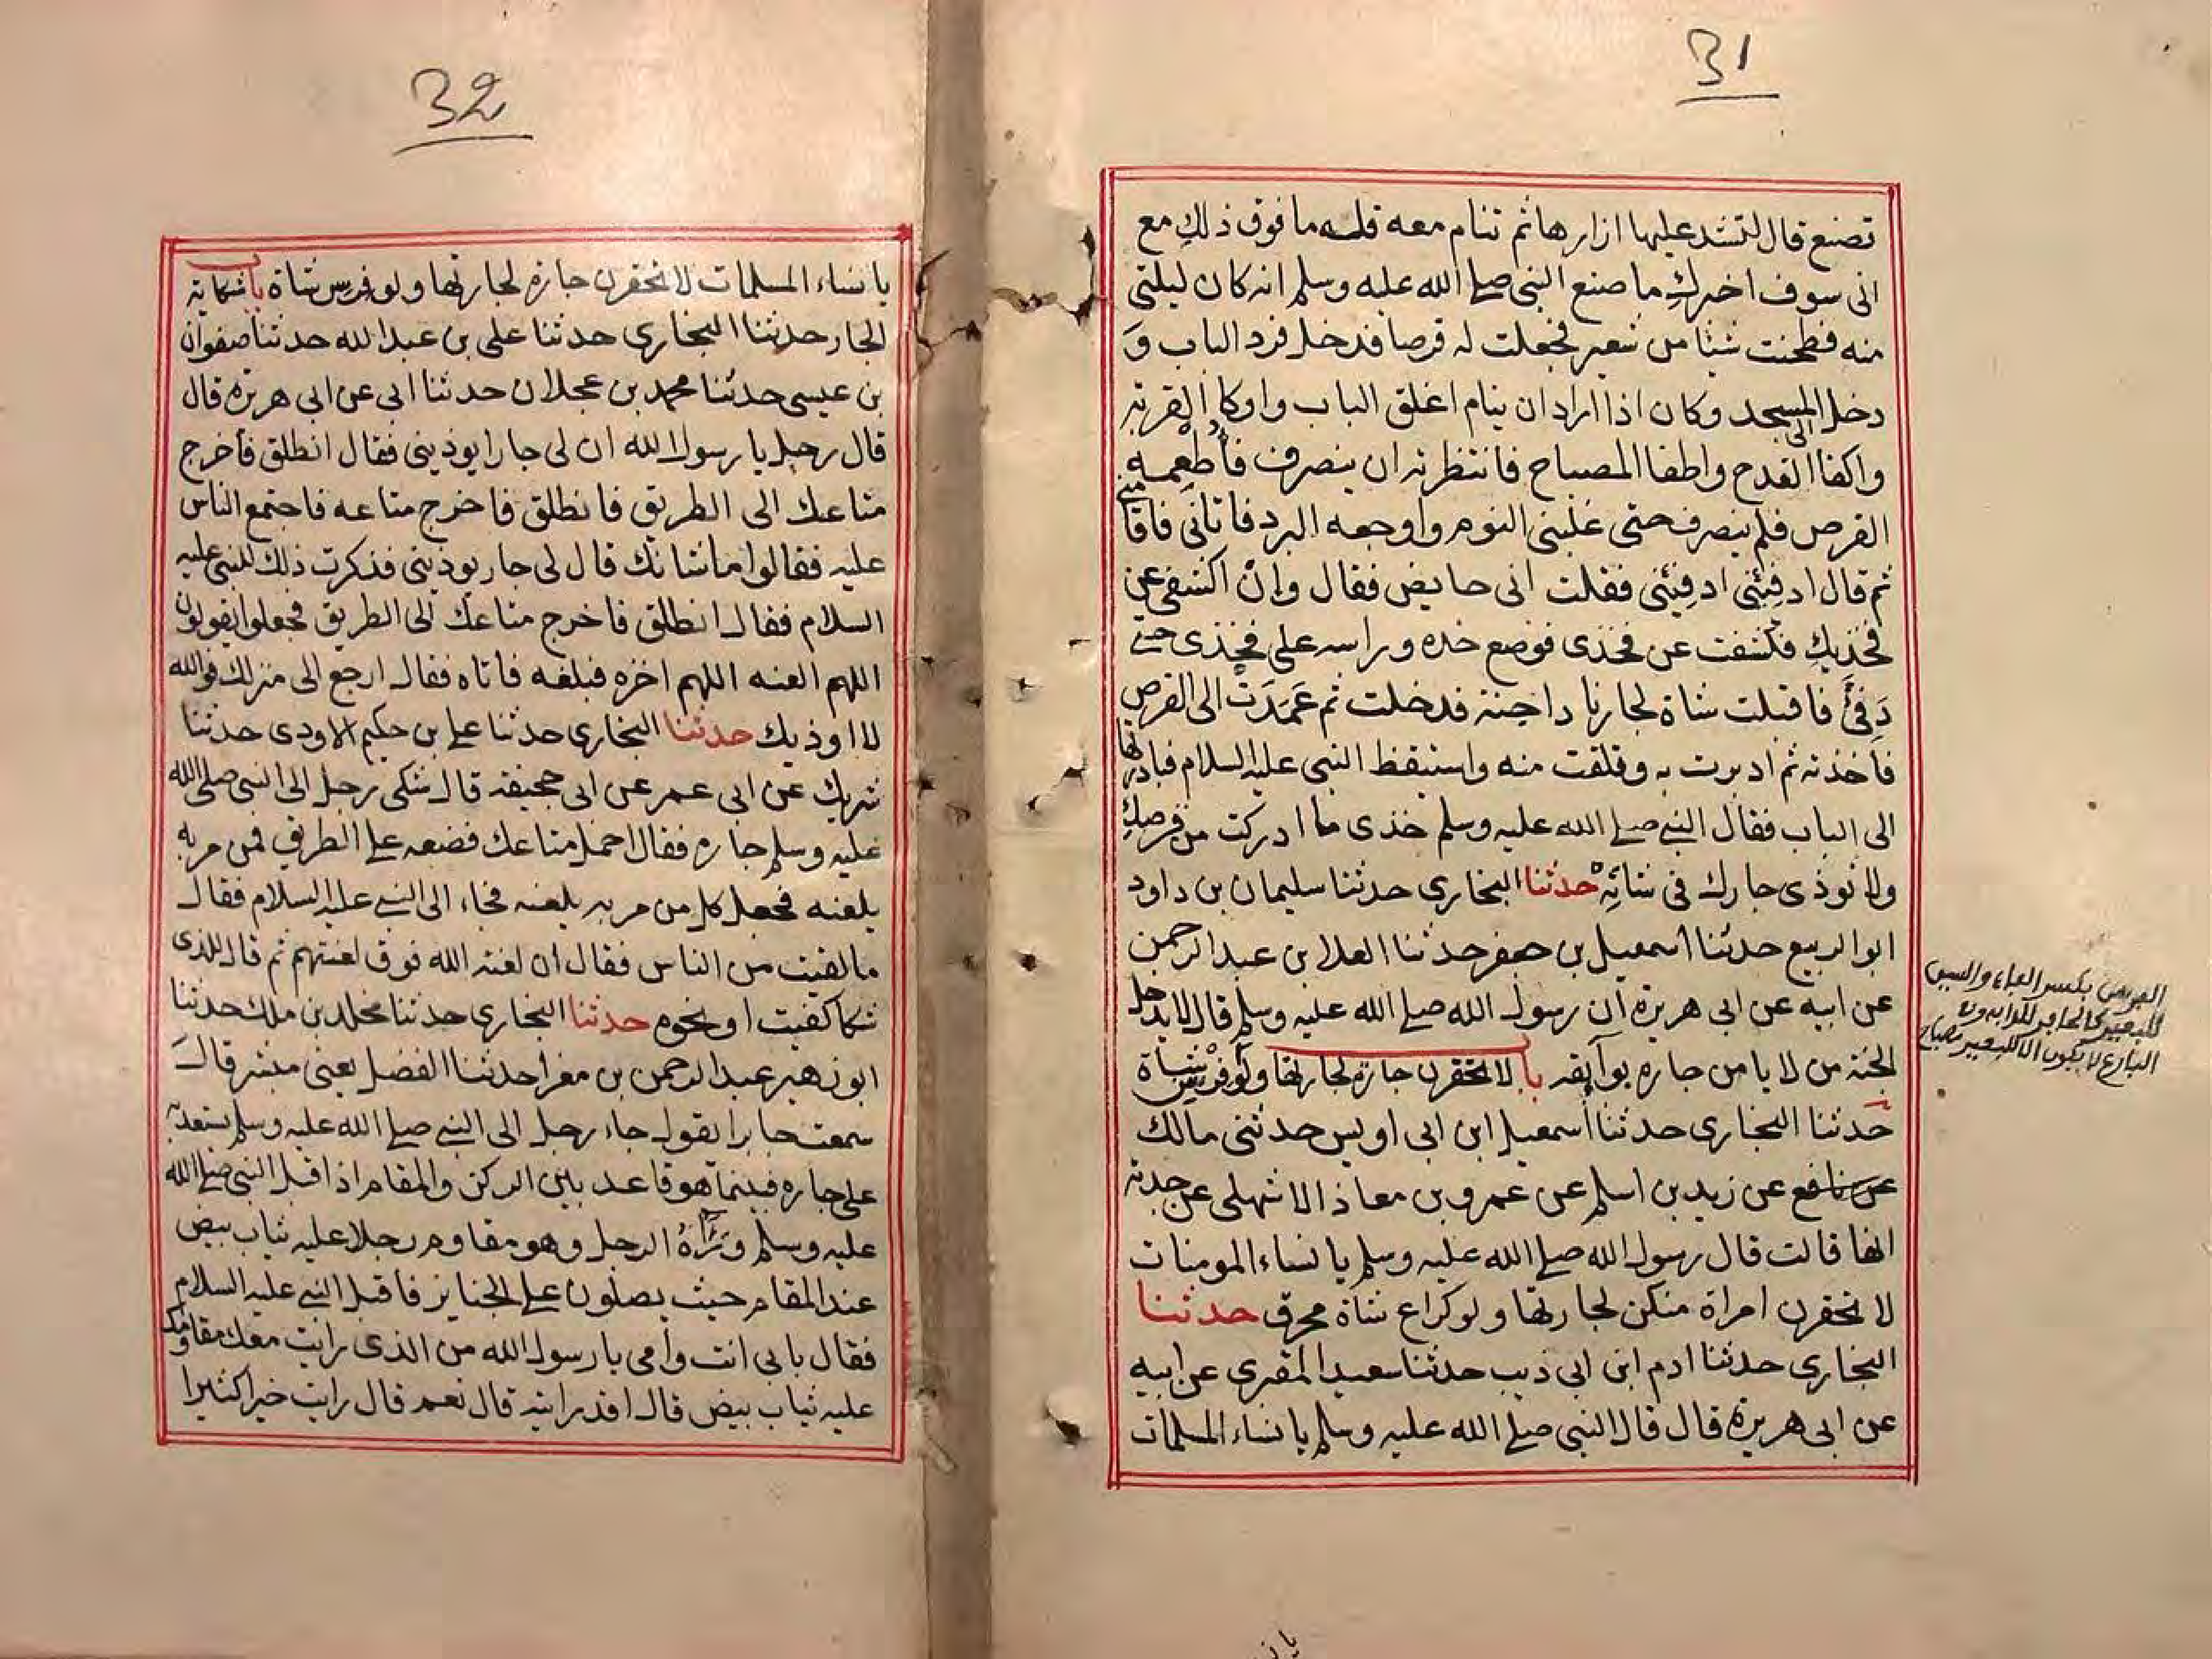 31
تصنع قال لتشد عليها ازارها ثم تنام معه فلـه ما فوق ذلك مع
انى سوف اخبرك ما صنع النبى صلى الله عليه وسلم انه كان ليلتى
منه فطحنت شيئا من شعير فجعلت له قرصا فدخل فرد الباب و
دخل المسجد وكان اذا اراد ان ينام اغلق الباب واوكا القربة
واكفا القدح واطفا المصباح فانتظرته ان ينصرف فاطعمه
القرص فلم ينصرف حتى غلبنى النوم واوجعه البرد فاتانى فاقامنى
ثم قال ادفئينى ادفئينى فقلت انى حايض فقال وان اكشفى عن
فخذيك فكشفت عن فخذى فوضع خده وراسه على فخذى حتى
دفئ فاقبلت شاة لجارنا داجنة فدخلت ثم عمدت الى القرص
فاخذته ثم ادبرت به وقلقت منه واستيقظ النبى عليه السلام فبادرتها
الى الباب فقال النبى صلى الله عليه وسلم خذى ما ادركت من قرصك
ولا توذى جارك فى شاته حدثنا البخارى حدثنا سليمان بن داود
ابو الربيع حدثنا اسمعيل بن جعفر حدثنا العلا بن عبد الرحمن
عن ابيه عن ابى هريرة ان رسول الله صلى الله عليه وسلم قال لا يدخل
الجنة من لا يامن جاره بوايقه با لا تحقرن جارة لجارتها ولو فرسن شاة
حدثنا البخارى حدثنا اسمعيل ابن ابى اويس حدثنى مالك
عن نافع عن زيد بن اسلم عن عمرو بن معاذ الاشهلى عن جدته
انها قالت قال رسول الله صلى الله عليه وسلم يا نساء المومنات
لا تحقرن امراة منكن لجارتها ولو كراع شاة محرق حدثنا
البخارى حدثنا ادم ابن ابى ذيب حدثنا سعيد المقبرى عن ابيه
عن ابى هريرة قال قال النبى صلى الله عليه وسلم يا نساء المسلمات
الفرسن بكسر الفاء والسين
للبعير كالحافر للدابة
البارع لا يكون الا للبعير مصباح
32
يا نساء المسلمات لا تحقرن جارة لجارتها ولو فرسن شاة با شكاية
الجار حدثنا البخارى حدثنا على بن عبد الله حدثنا صفوان
بن عيسى حدثنا محمد بن عجلان حدثنا ابى عن ابى هريرة قال
قال رجل يا رسول الله ان لى جارا يوذينى فقال انطلق فاخرج
متاعك الى الطريق فانطلق فاخرج متاعه فاجتمع الناس
عليه فقالوا ما شانك قال لى جار يوذينى فذكرت ذلك للنبى عليه
السلام فقال انطلق فاخرج متاعك الى الطريق فجعلوا يقولون
اللهم العنه اللهم اخزه فبلغه فاتاه فقال ارجع الى منزلك فوالله
لا اوذيك حدثنا البخارى حدثنا على بن حكيم الاودى حدثنا
شريك عن ابى عمر عن ابى جحيفة قال شكى رجل الى النبى صلى الله
عليه وسلم جاره فقال احمل متاعك فضعه على الطريق فمن مر به
يلعنه فجعل كل من مر به يلعنه فجاء الى النبى عليه السلام فقال
ما لقيت من الناس فقال ان لعنة الله فوق لعنتهم ثم قال للذى
شكا كفيت او نحوه حدثنا البخارى حدثنا مخلد بن ملك حدثنا
ابو زهير عبد الرحمن بن مغرا حدثنا الفضل يعنى مبشر قال
سمعت جابرا يقول جاء رجل الى النبى صلى الله عليه وسلم يستعديه
على جاره فبينما هو قاعد بين الركن والمقام اذ اقبل النبى صلى الله
عليه وسلم ورآه الرجل وهو مقاوم رجلا عليه ثياب بيض
عند المقام حيث يصلون على الجنايز فاقبل النبى عليه السلام
فقال بابى انت وامى يا رسول الله من الذى رايت معك مقاومك
عليه ثياب بيض قال اقد رايته قال نعم قال رايت خيرا كثيرا